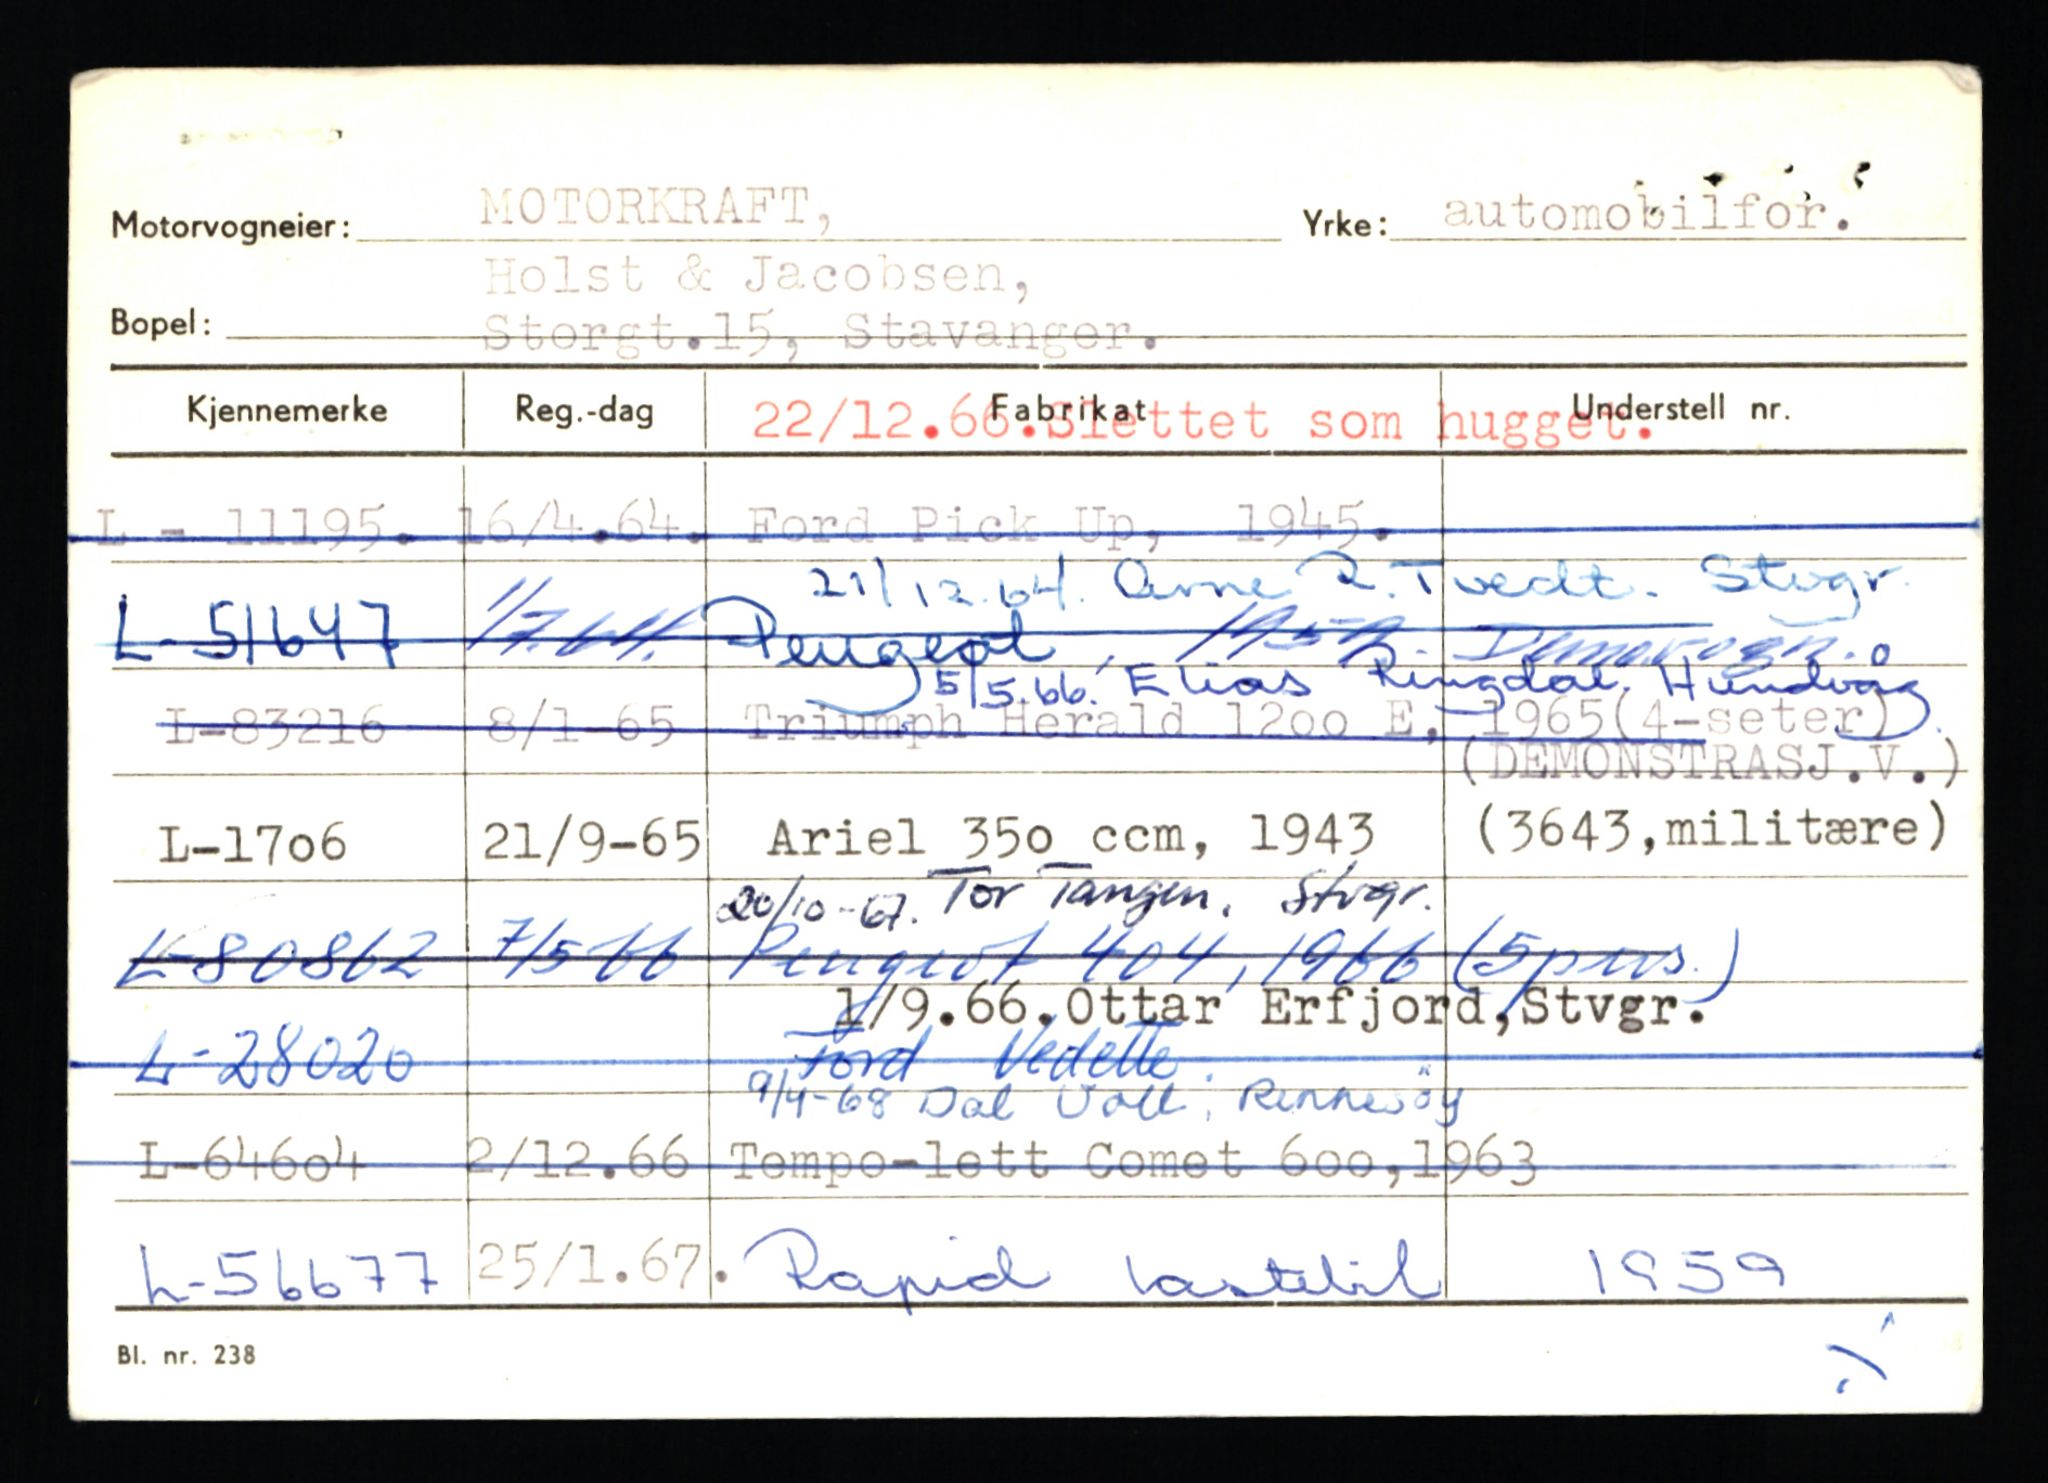 Motorvogneier: MOTORKRAFT, Yrke: automobilfor.
Holst & Jacobsen,
Bopel: Storgt.15, Stavanger.
Kjennemerke Reg.-dag Fabrikat Understell nr.
22/12.66.Slettet som hugget.
L - 11195. 16/4.64. Ford Pick Up, 1945.
21/12.64. Arne R. Tvedt. Stvgr.
L-51647 1/7.64. Peugeot 1959. Demovogn.
5/5.66. Elias Ringdal. Hundvåg
L-83216 8/1-65 Triumph Herald 12oo E, 1965(4-seter)
(DEMONSTRASJ.V.)
L-17o6 21/9-65 Ariel 35o ccm, 1943 (3643,militære)
20/10-67. Tor Tangen. Stvgr.
L-80862 7/5 66 Peugeot 404, 1966 (5 pers.)
1/9.66.Ottar Erfjord,Stvgr.
L-28020 Ford Vedette.
9/4-68 Dal Voll, Rennesöy
L-646o4 2/12.66 Tempo-lett Comet 6oo,1963
L-56677 25/1.67. Rapid lastebil 1959
Bl. nr. 238